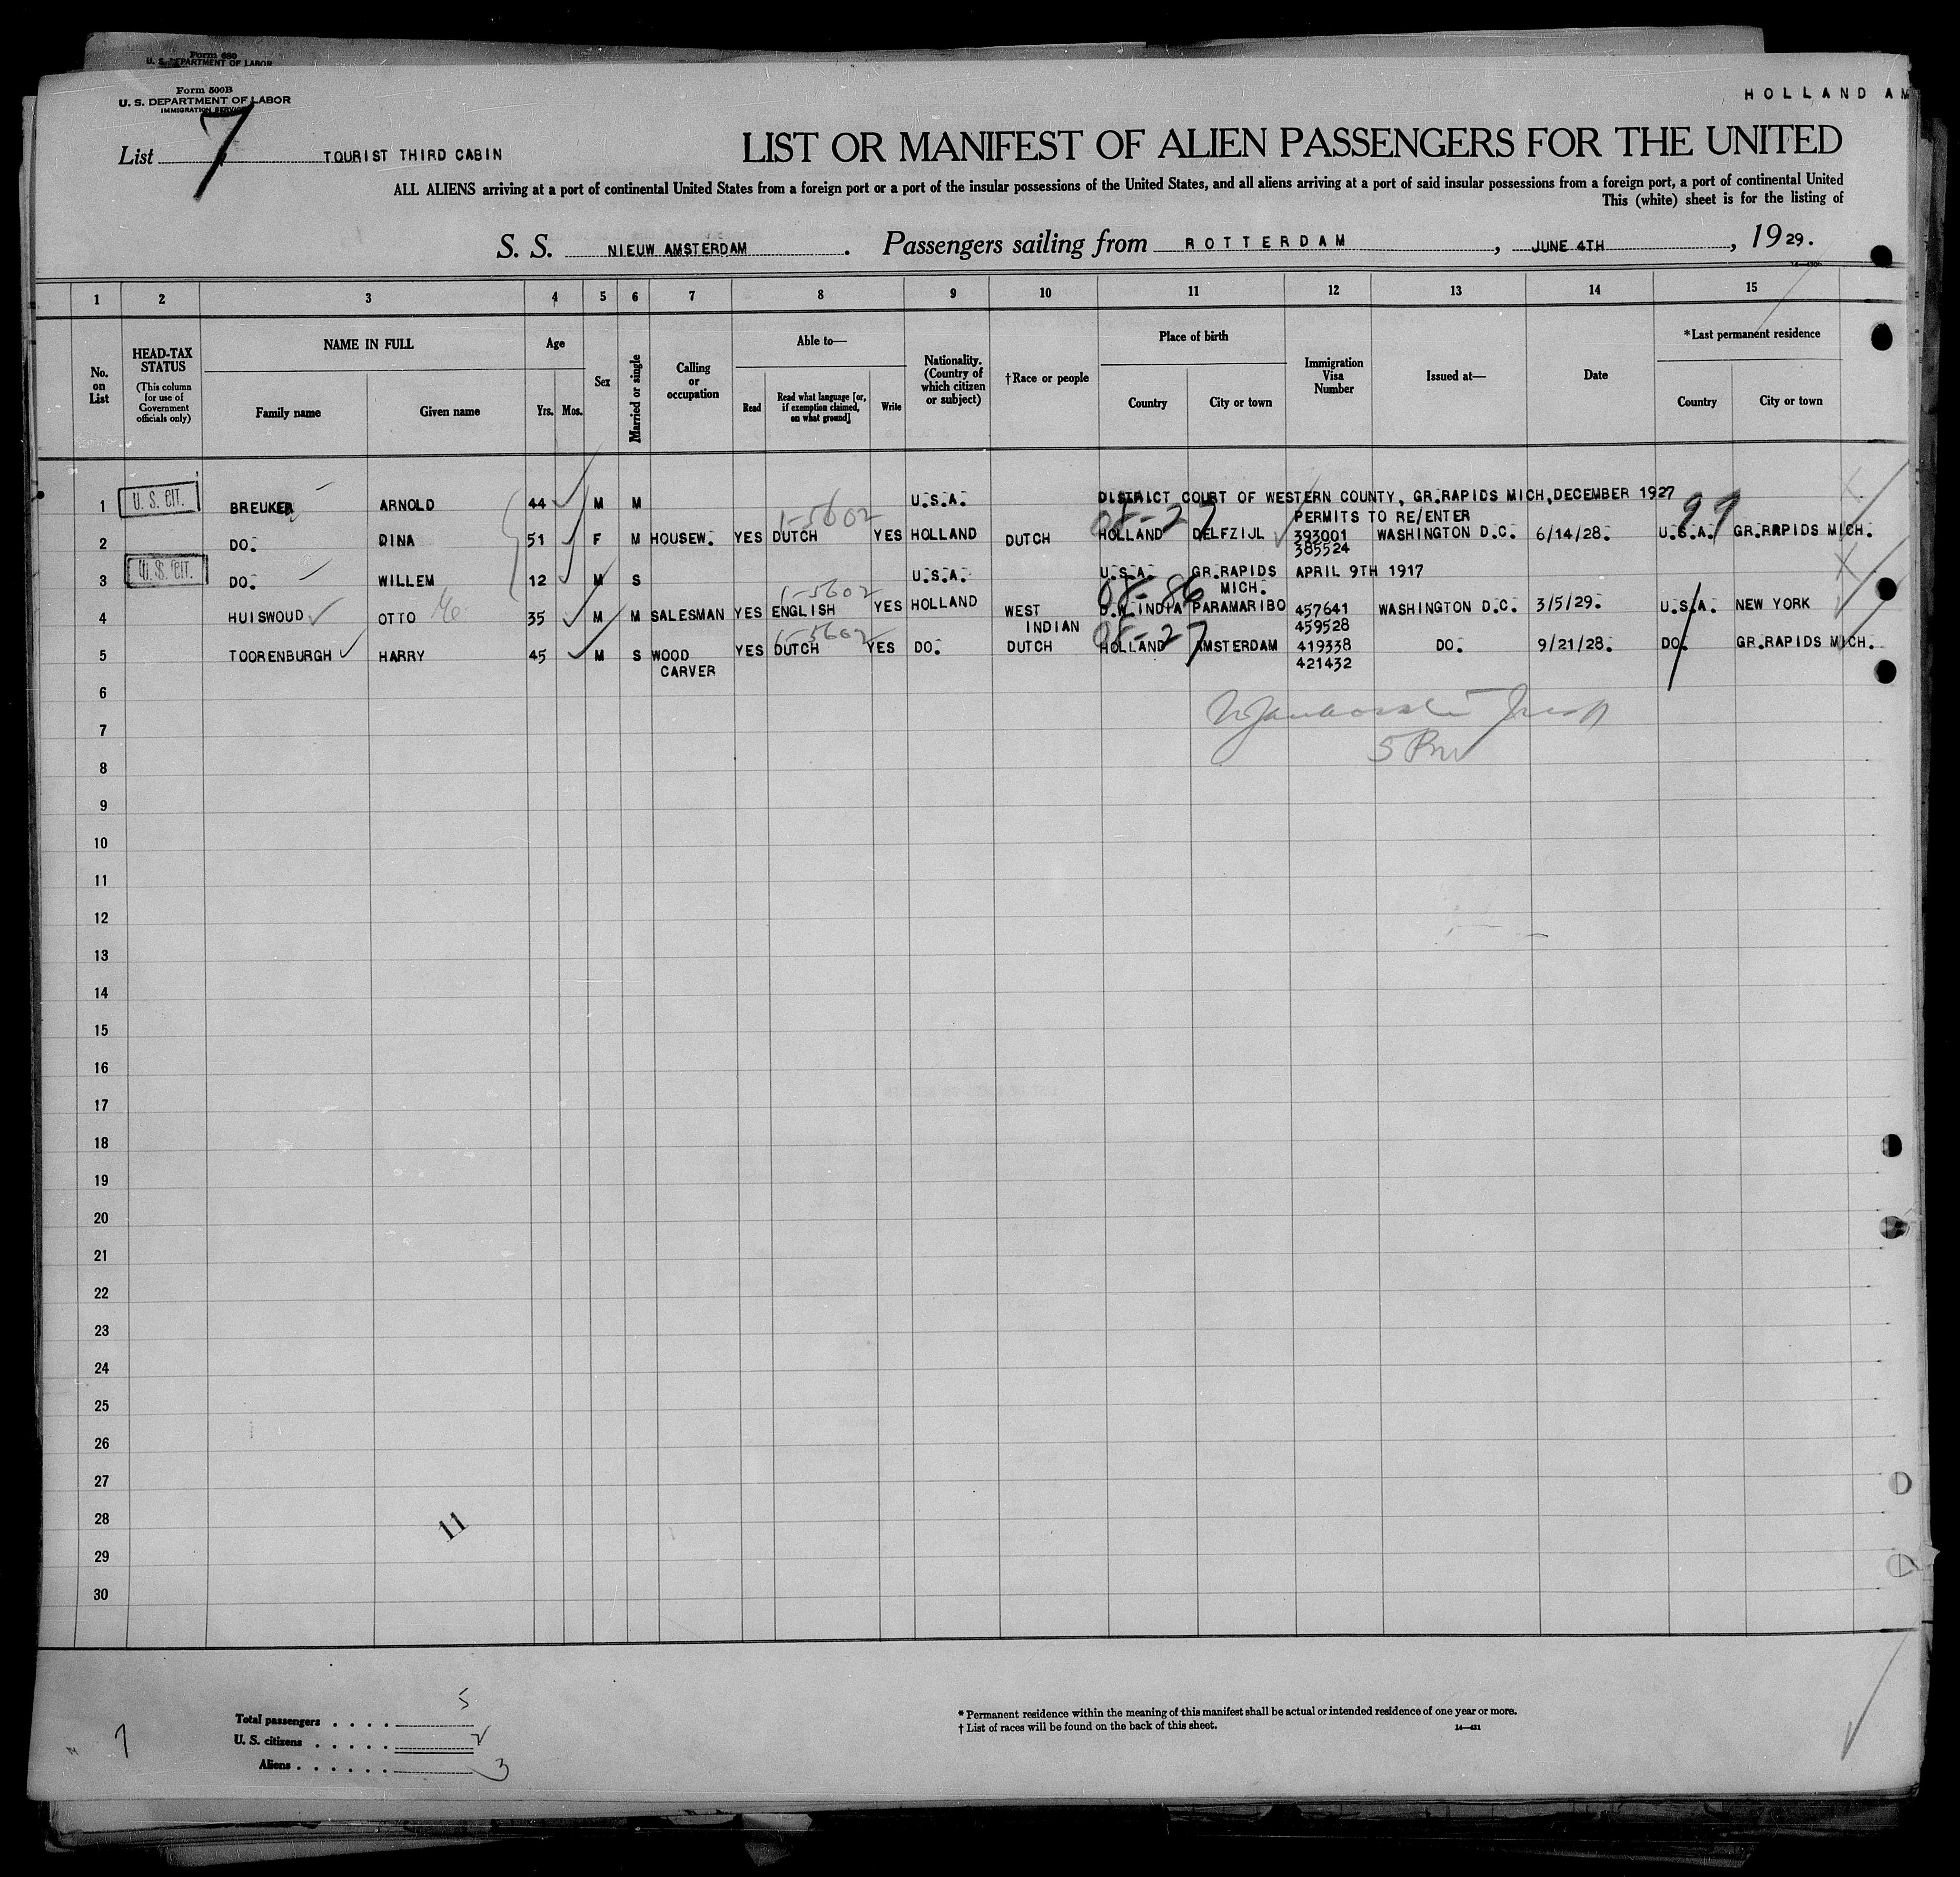 Form 500
U. S. DEPARTMENT OF LABOR
Form 500B
U. S. DEPARTMENT OF LABOR
IMMIGRATION SERVICE
HOLLAND AM
7
List TOURIST THIRD CABIN
LIST OR MANIFEST OF ALIEN PASSENGERS FOR THE UNITED
ALL ALIENS arriving at a port of continental United States from a foreign port or a port of the insular possessions of the United States, and all aliens arriving at a port of said insular possessions from a foreign port, a port of continental United
This (white) sheet is for the listing of
S. S. NIEUW AMSTERDAM . Passengers sailing from ROTTERDAM , JUNE 4TH , 1929.
1 2 3 4 5 6 7 8 9 10 11 12 13 14 15
No. on List
HEAD-TAX STATUS (This column for use of Government officials only)
NAME IN FULL
Family name Given name
Age
Yrs. Mos.
Sex
Married or single
Calling or occupation
Able to—
Read Read what language [or, if exemption claimed, on what ground] Write
Nationality. (Country of which citizen or subject)
†Race or people
Place of birth
Country City or town
Immigration Visa Number
Issued at—
Date
*Last permanent residence
Country City or town
1 U. S. CIT. BREUKER ARNOLD 44 M M U.S.A. DISTRICT COURT OF WESTERN COUNTY, GR.RAPIDS MICH, DECEMBER 1927
1-5602 08-27 PERMITS TO RE/ENTER 99
2 DO. DINA 51 F M HOUSEW. YES DUTCH YES HOLLAND DUTCH HOLLAND DELFZIJL 393001 WASHINGTON D.C. 6/14/28. U.S.A. GR.RAPIDS MICH.
385524
3 U. S. CIT. DO. WILLEM 12 M S U.S.A. U.S.A. GR.RAPIDS APRIL 9TH 1917
MICH.
1-5602 08-86
4 HUISWOUD OTTO 35 M M SALESMAN YES ENGLISH YES HOLLAND WEST D.W.INDIA PARAMARIBO 457641 WASHINGTON D.C. 3/5/29. U.S.A. NEW YORK
INDIAN 459528
1-5602 08-27
5 TOORENBURGH HARRY 45 M S WOOD YES DUTCH YES DO. DUTCH HOLLAND AMSTERDAM 419338 DO. 9/21/28. DO. GR.RAPIDS MICH.
CARVER 421432
6
7
8
9
10
11
12
13
14
15
16
17
18
19
20
21
22
23
24
25
26
27
28
11
29
30
Total passengers . . . . 5
U. S. citizens . . . . . 2
Aliens . . . . . . 3
7
* Permanent residence within the meaning of this manifest shall be actual or intended residence of one year or more.
† List of races will be found on the back of this sheet.
14—421